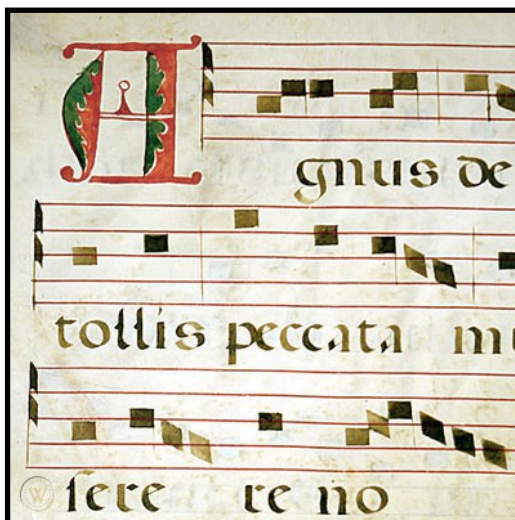 Agnus de
tollis peccata mu
sere re no